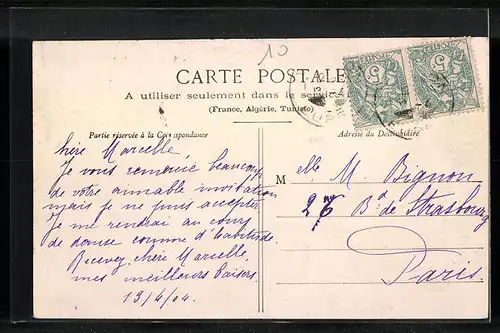 10
CARTE POSTALE
A utiliser seulement dans le service
(France, Algérie, Tunisie)
Partie réservée à la Correspondance
Adresse du Destinataire
Chère Marcelle
Je vous remercie beaucoup
de votre aimable invitation
mais je ne puis accepter
Je me rendrai au cours
de danse comme d'habitude.
Recevez, chère Marcelle,
mes meilleurs baisers.
13/4/04.
Melle M. Bignon
276 Bd de Strasbourg
Paris